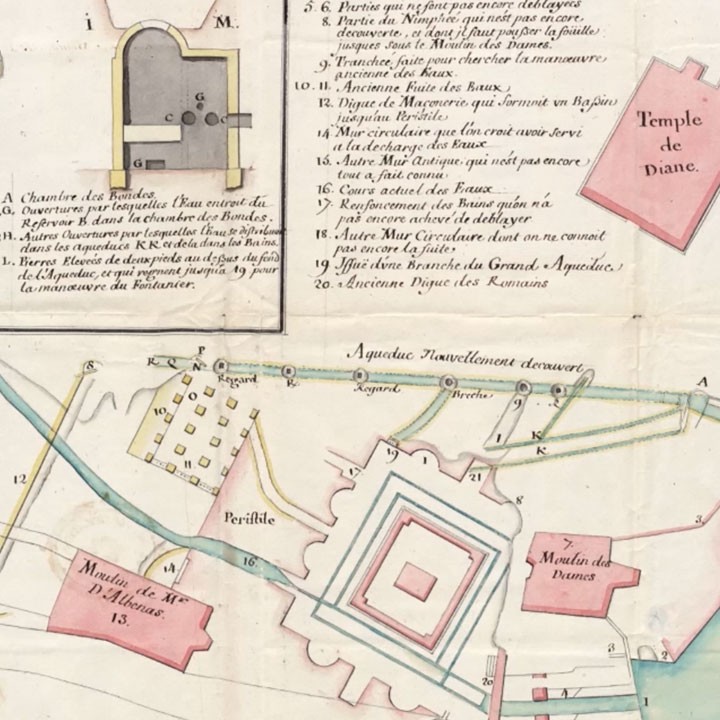 I M.
G
C C
G
A Chambre des Bondes.
G. Ouvertures par lesquelles l'Eau entroit du
Reservoir B dans la chambre des Bondes.
H. Autres Ouvertures par lesquelles l'Eau se distribuoit
dans les aqueducs KK et de la dans les Bains.
L. Pierres Elevées de deux pieds au dessus du fond
de l'Aqueduc, et qui regnent jusqu'a 19 pour
la manœuvre du Fontanier.
5. 6. Parties qui ne sont pas encore deblayées
8. Partie du Nimphée qui n'est pas encore
decouverte, et dont il faut pousser la fouille
jusques sous le Moulin des Dames.
9. Tranchée faite pour chercher la manœuvre
ancienne des Eaux.
10. 11. Ancienne Fuite des Eaux
12. Digue de Maçonerie qui formoit un Bassin
jusqu'au Peristile
14 Mur circulaire que l'on croit avoir servi
a la decharge des Eaux
15. Autre Mur Antique qui n'est pas encore
tout a fait connu
16. Cours actuel des Eaux
17. Renfoncement des Bains qu'on n'a
pas encore achevé de deblayer
18. Autre Mur Circulaire dont on ne connoit
pas encore la suite
19 Issue d'une Branche du Grand Aqueduc
20. Ancienne Digue des Romains
Temple
de
Diane.
Aqueduc Nouvellement decouvert
8. R Q P N Regard R. Regard Breche 9 A
O
10
11.
K
I K
19 1
21
17
8
12
Peristile
16
14
Moulin de Mr
D'Albenas.
13.
7.
Moulin des
Dames
3.
3 2
20
4 1